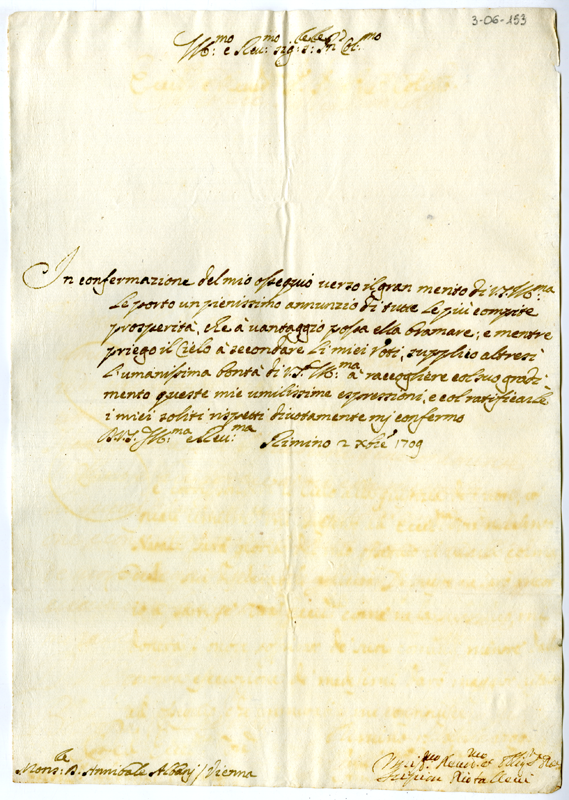 3-06-153
Ill:mo e Rev:mo Sig:r Sig:r P.ron Col:mo
In confermazione del mio ossequio verso il gran merito di V.S. Ill:ma
Le porto un pienissimo annunzio di tutte le più compite
prosperità, che à vantaggio possa ella bramare; e mentre
priego il Cielo à secondare li miei voti, supplico altresì
l'umanissima bontà di V.S. Ill:ma à raccogliere col suo gradi
mento queste mie umilissime espressioni, e col ratificarle
i miei soliti rispetti divotamente mi confermo
Di V.S. Ill:ma e Rev:ma Rimino 2 Xbre 1709
Mons:re D. Annibale Albani / Vienna